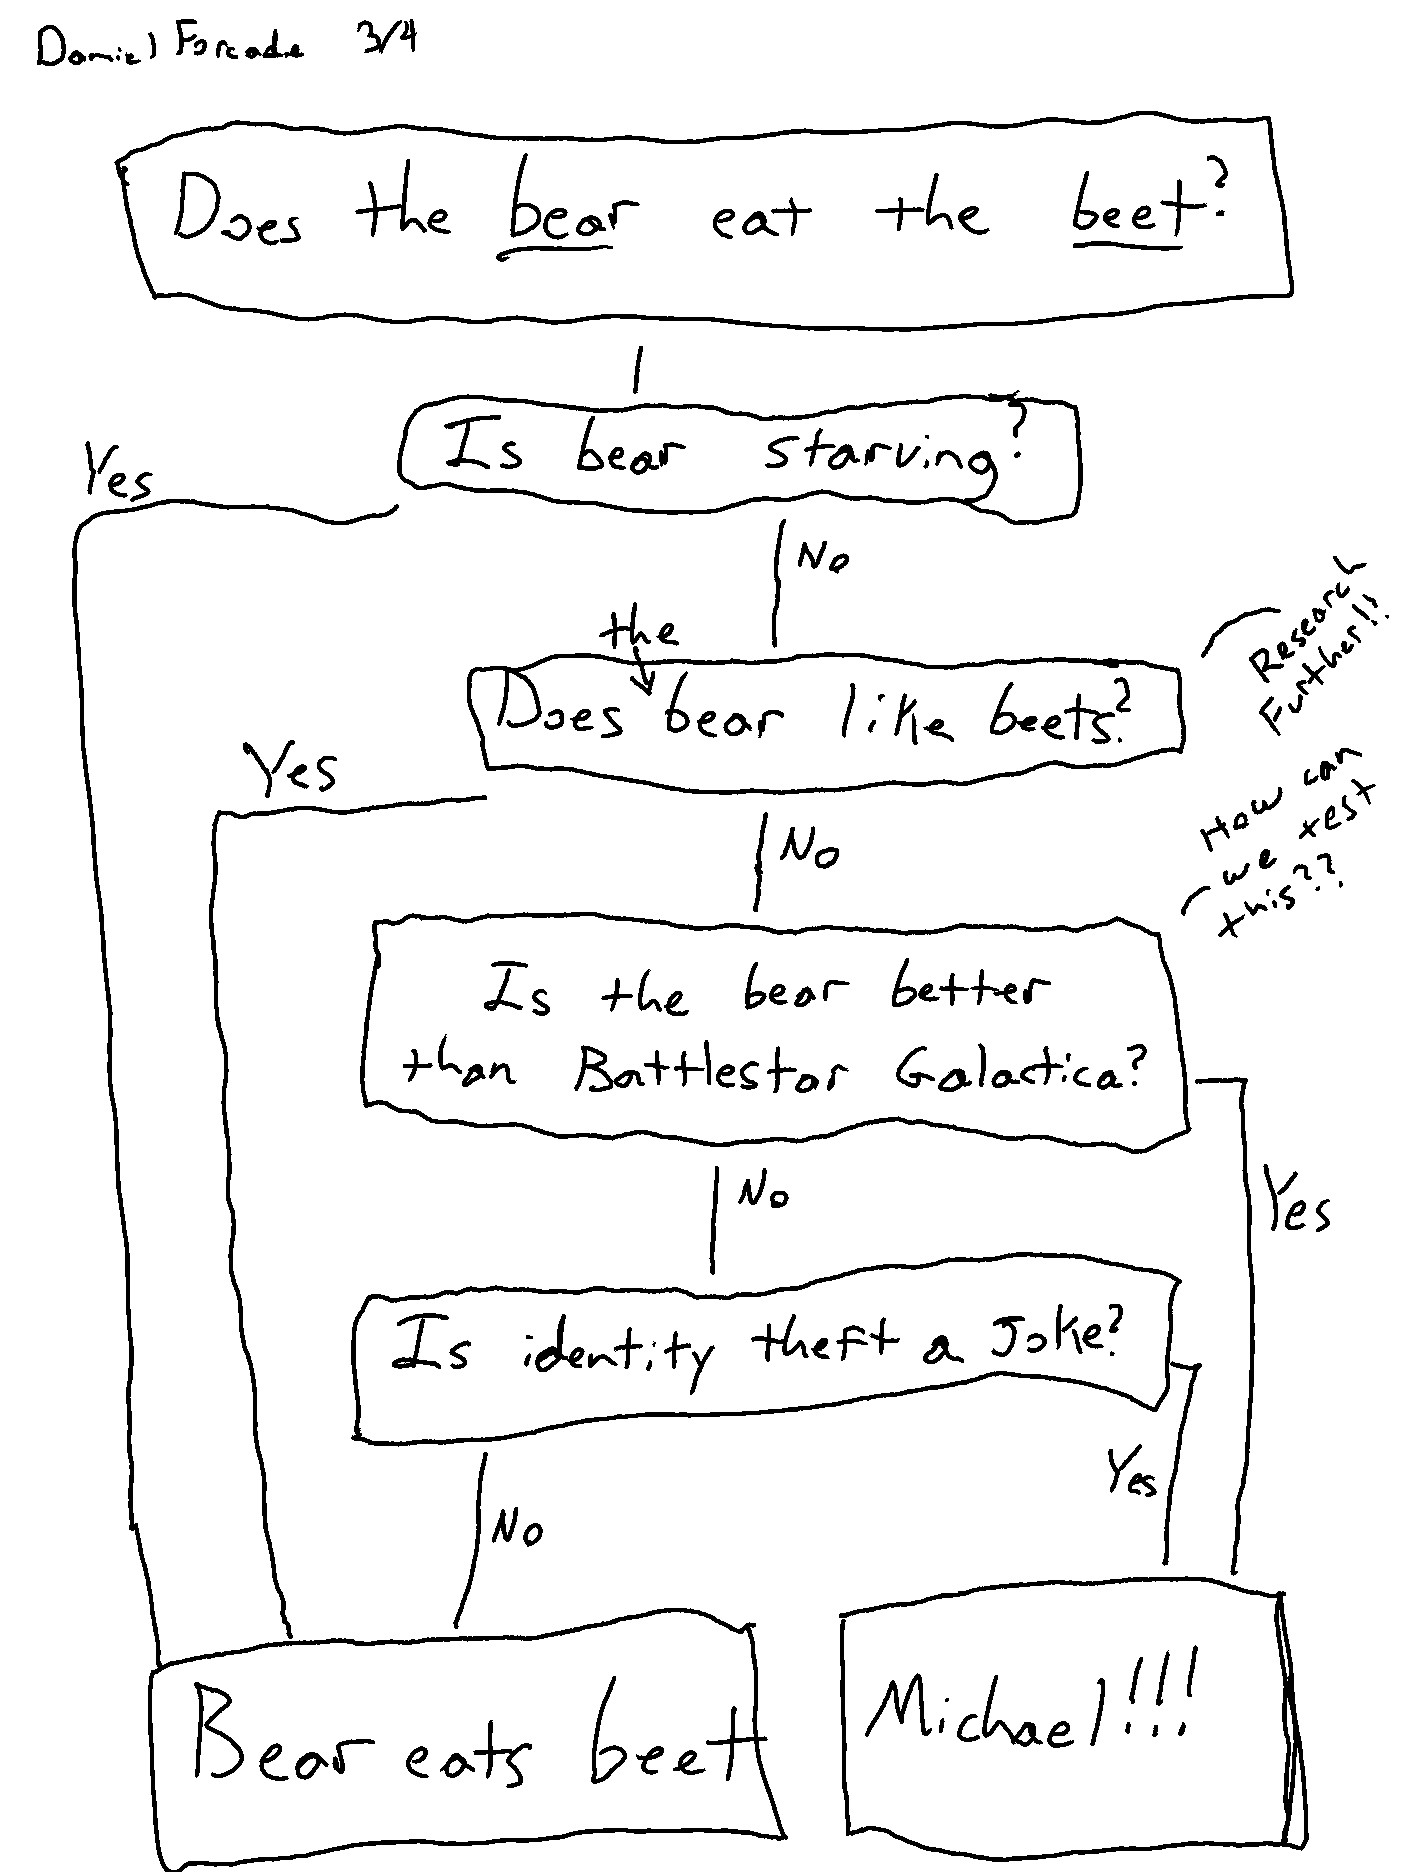 Daniel Forcade 3/4
Does the bear eat the beet?
Is bear starving?
Yes
No
the
Does bear like beets?
Research
Further!!
Yes
No
How can
we test
this??
Is the bear better
than Battlestar Galactica?
No
Yes
Is identity theft a joke?
Yes
No
Bear eats beet
Michael!!!